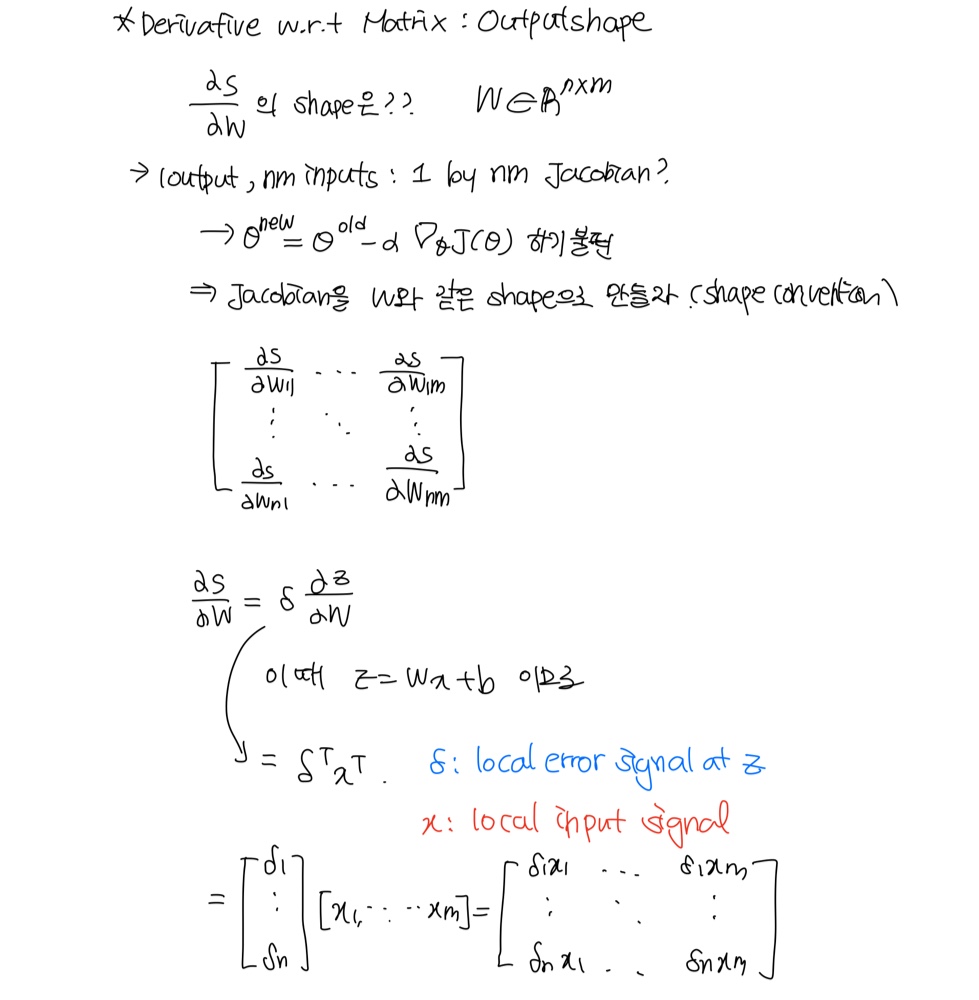 *Derivative w.r.t Matrix : Outputshape
∂S/∂W 의 shape은?? W∈R^{n×m}
→ 1output, nm inputs : 1 by nm Jacobian?
→ θ^{new} = θ^{old} - α ∇_θ J(θ) 하기불편
⇒ Jacobian을 W와 같은 shape으로 만들자 (shape convention)
[ ∂S/∂W₁₁ ··· ∂S/∂W₁ₘ
⋮ ⋱ ⋮
∂S/∂Wₙ₁ ··· ∂S/∂Wₙₘ ]
∂S/∂W = δ ∂z/∂W
이때 z = Wx+b 이므로
= δᵀxᵀ. δ: local error signal at z
x: local input signal
= [δ₁ ⋮ δₙ] [x₁, ··· xₘ] = [δ₁x₁ ··· δ₁xₘ
⋮ ⋱ ⋮
δₙx₁ ·· δₙxₘ]